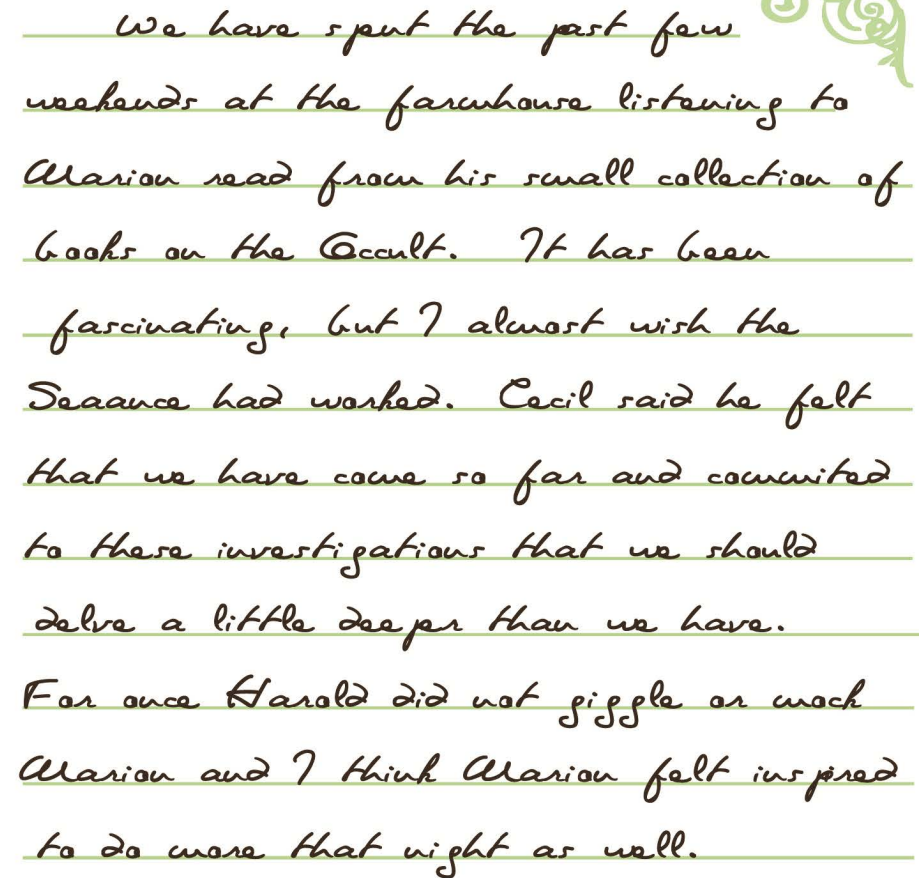 We have spent the past few
weekends at the farmhouse listening to
Marion read from his small collection of
books on the Occult. It has been
fascinating, but I almost wish the
Seaance had worked. Cecil said he felt
that we have come so far and commited
to these investigations that we should
delve a little deeper than we have.
For once Harold did not giggle or mock
Marion and I think Marion felt inspired
to do more that night as well.